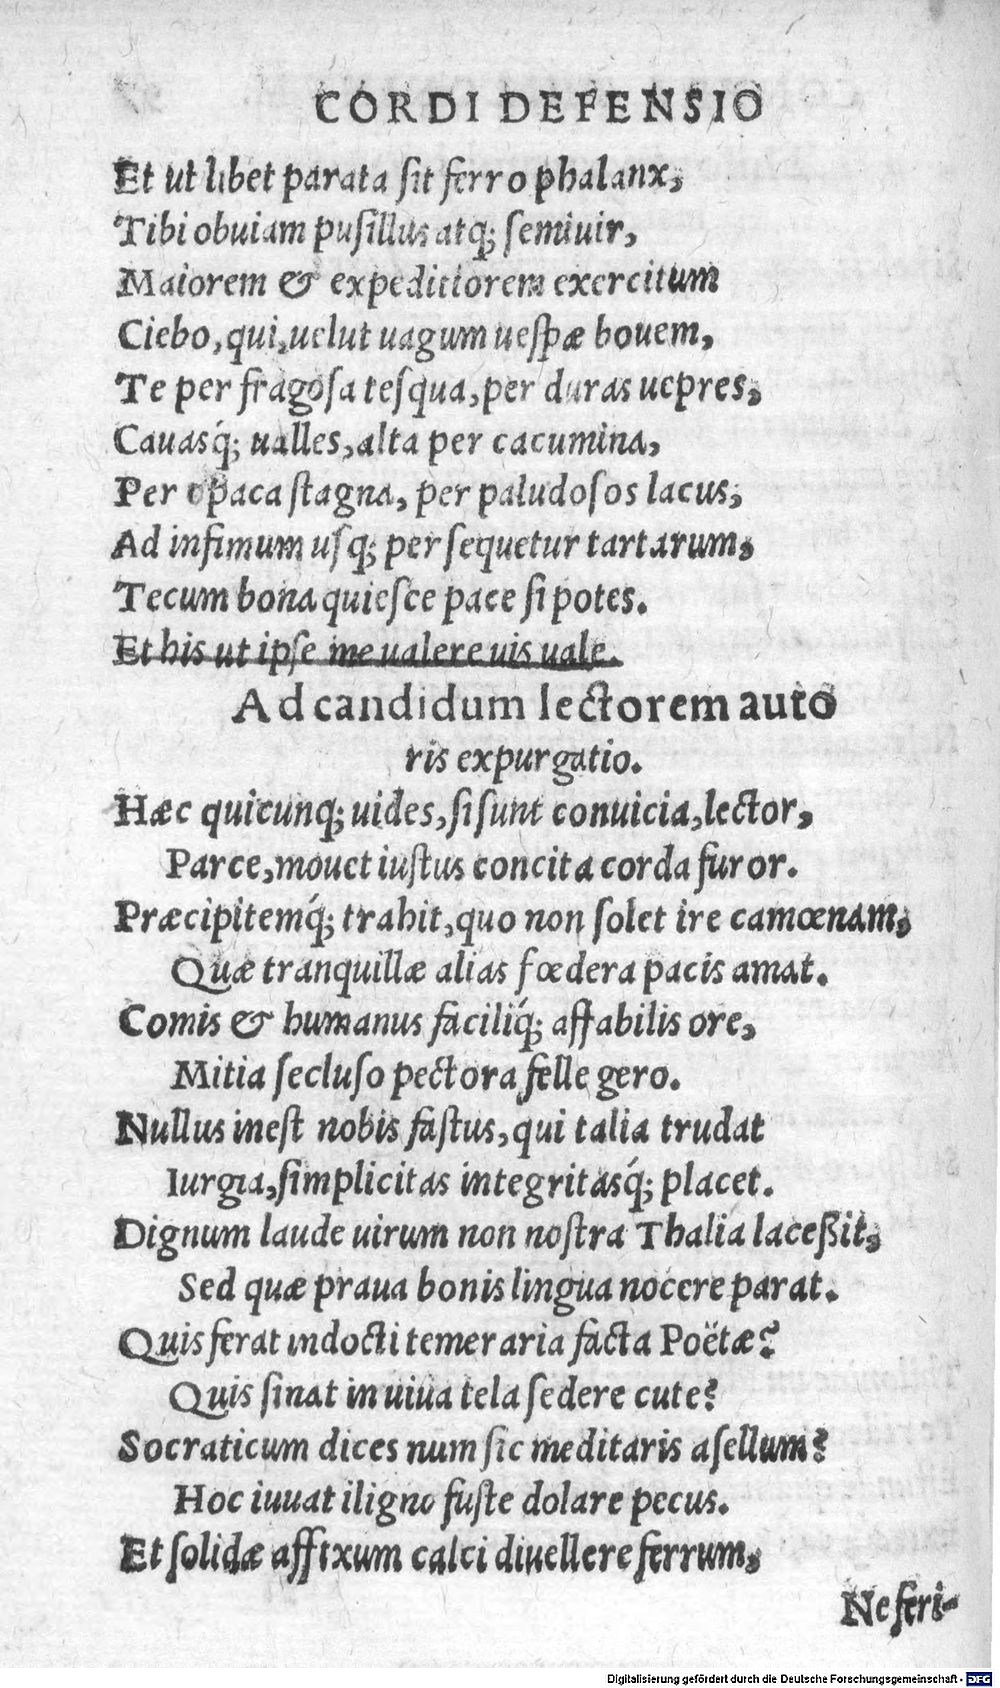 CORDI DEFENSIO
Et ut libet parata sit ferro phalanx,
Tibi obuiam pusillus atq; semiuir,
Maiorem & expeditiorem exercitum
Ciebo, qui, uelut uagum uespæ bouem,
Te per fragosa tesqua, per duras uepres,
Cauasq́; ualles, alta per cacumina,
Per opaca stagna, per paludosos lacus,
Ad infimum usq; per sequetur tartarum,
Tecum bona quiesce pace si potes.
Et his ut ipse me ualere uis uale.
Ad candidum lectorem auto
ris expurgatio.
Hæc quicunq; uides, si sunt conuicia, lector,
Parce, mouet iustus concita corda furor.
Præcipitemq́; trahit, quo non solet ire camœnam,
Quæ tranquillæ alias fœdera pacis amat.
Comis & humanus faciliq́; affabilis ore,
Mitia secluso pectora felle gero.
Nullus inest nobis fastus, qui talia trudat
Iurgia, simplicitas integritasq́; placet.
Dignum laude uirum non nostra Thalia laceßit,
Sed quæ praua bonis lingua nocere parat.
Quis ferat indocti temeraria facta Poëtæ?
Quis sinat in uiua tela sedere cute?
Socraticum dices num sic meditaris asellum?
Hoc iuuat iligno fuste dolare pecus.
Et solidæ affixum calci diuellere ferrum,
Ne feri-
Digitalisierung gefördert durch die Deutsche Forschungsgemeinschaft - DFG